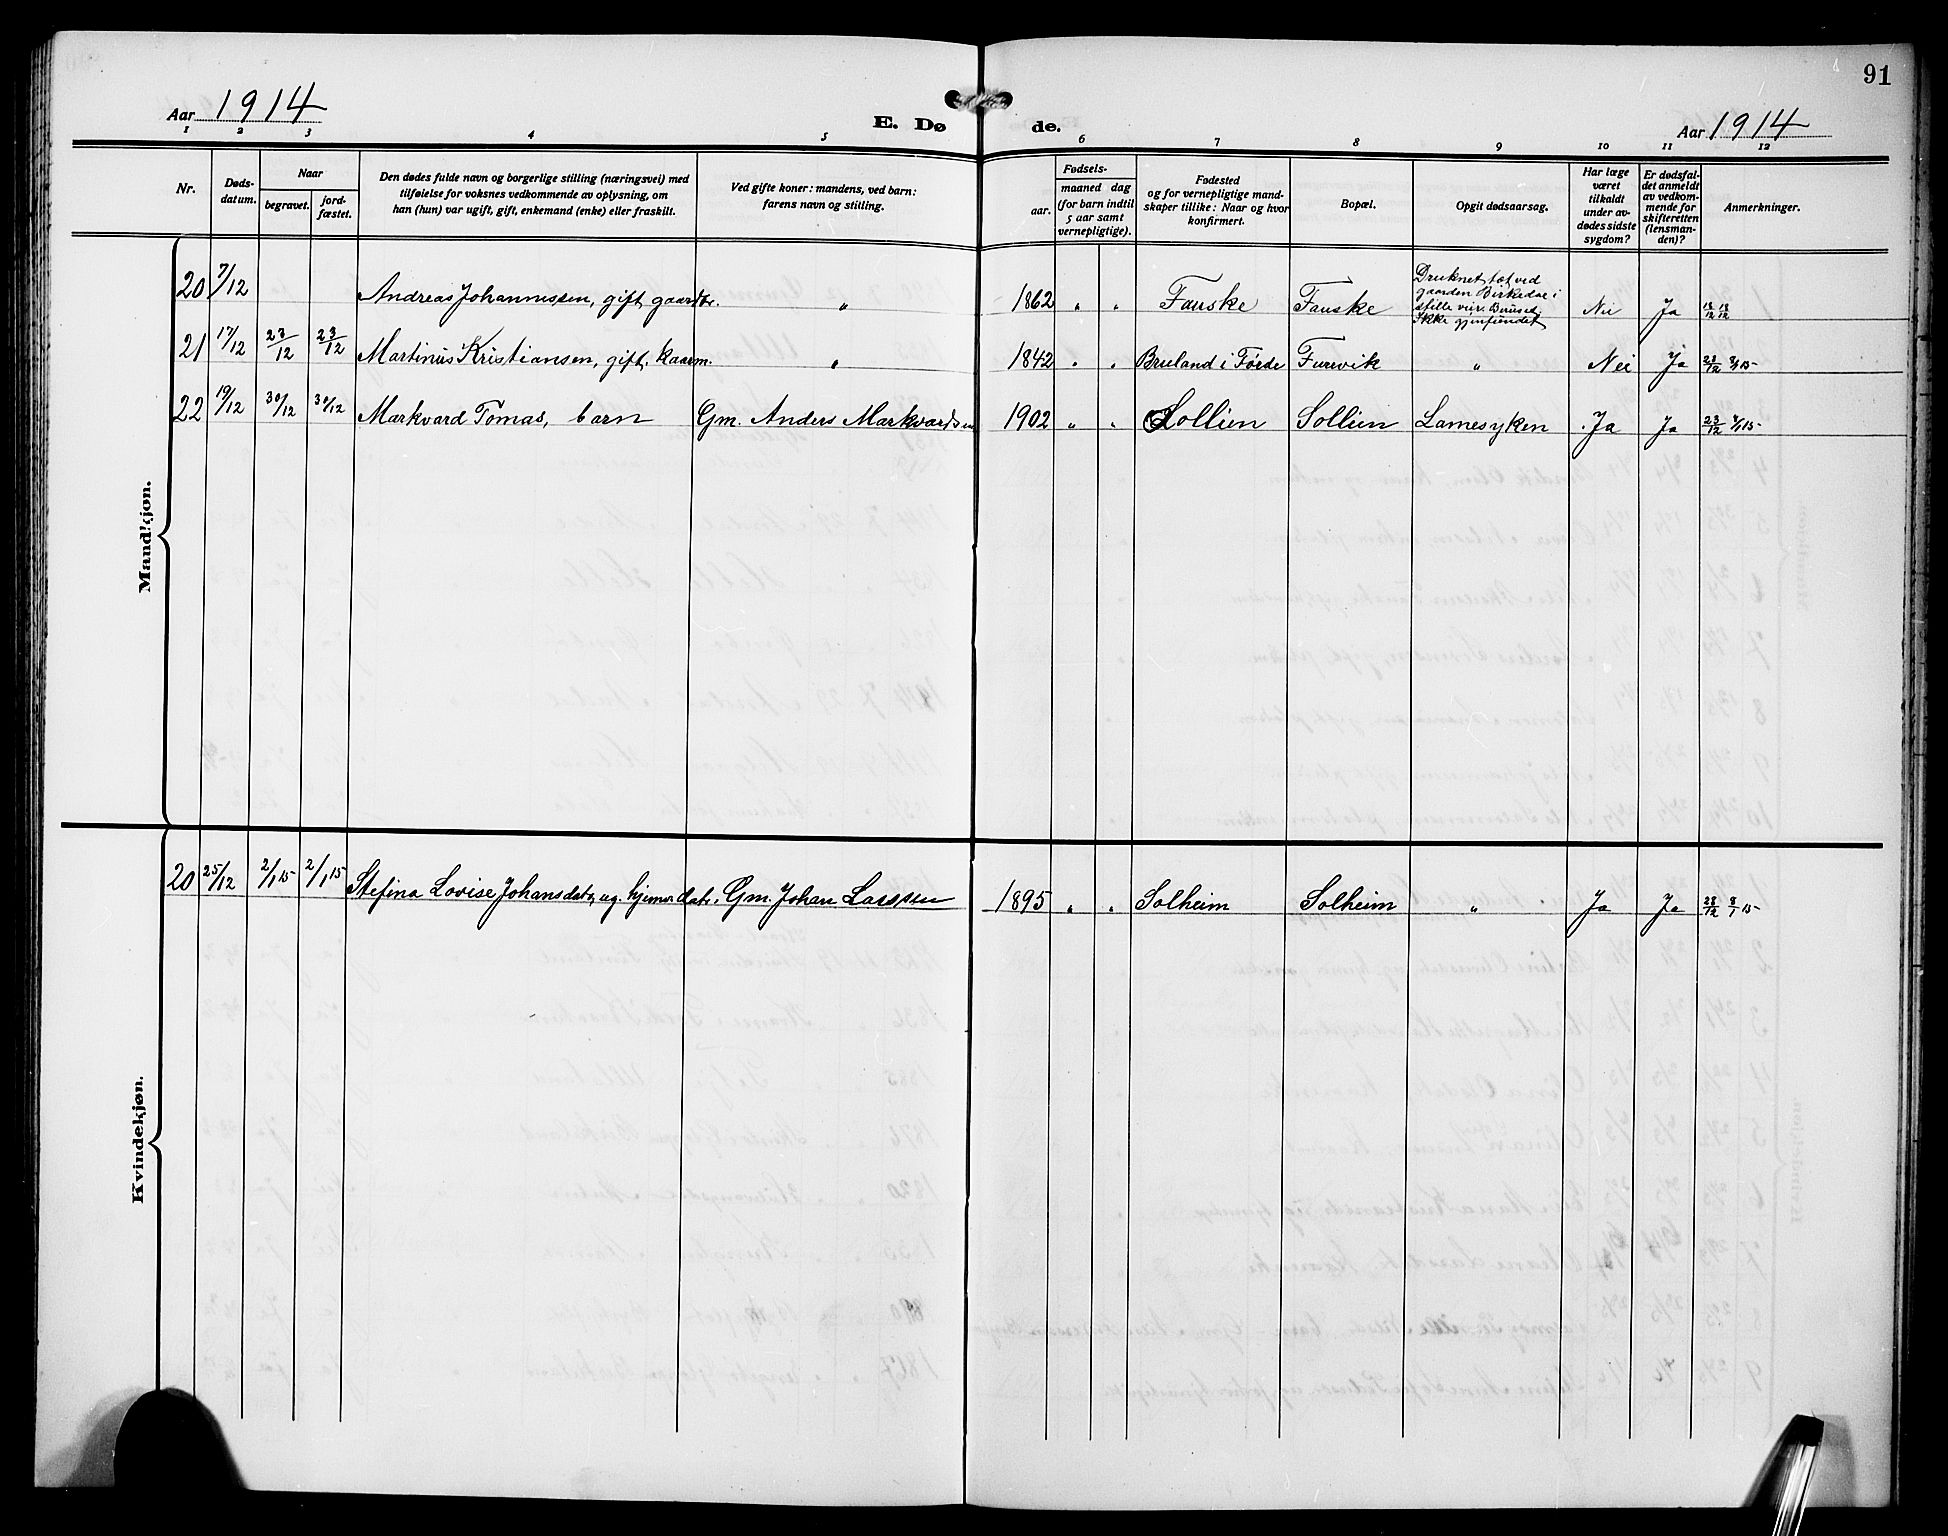 91
Aar 1914
E. Dø de.
Aar 1914
1 2 3 4 5 6 7 8 9 10 11 12
Nr.
Døds-
datum.
Naar
begravet.
jord-
fæstet.
Den dødes fulde navn og borgerlige stilling (næringsvei) med
tilføielse for voksnes vedkommende av oplysning, om
han (hun) var ugift, gift, enkemand (enke) eller fraskilt.
Ved gifte koner: mandens, ved barn:
farens navn og stilling.
Fødsels-
aar.
maaned dag
(for barn indtil
5 aar samt
vernepligtige).
Fødested
og for vernepligtige mand-
skaper tillike: Naar og hvor
konfirmert.
Bopæl.
Opgit dødsaarsag.
Har læge
været
tilkaldt
under av-
dødes sidste
sygdom?
Er dødsfal-
det anmeldt
av vedkom-
mende for
skifteretten
(lensman-
den)?
Anmerkninger.
Mandkjøn.
20 7/12 Andreas Johannessen, gift gaardbr. " 1862 " " Fauske Fauske Druknet tæt ved
gaarden Birkedal i
stille veir
Ikke gjenfundet Nei Ja 18/12 18/12
21 17/12 23/12 23/12 Martinus Kristiansen, gift, kaarm. " 1842 " " Bruland i Førde Furevik " Nei Ja
22 19/12 30/12 30/12 Markvard Tomas, barn Gm. Anders Markvardsen 1902 " " Sollien Sollien Lamesyken Ja Ja 23/12
Kvindekjøn.
20 25/12 2/1 15 2/1 15 Stefina Lovise Johansdatr, ug. hjemv. datr. Gm. Johan Larssen 1895 " " Solheim Solheim " Ja Ja 28/12 8/1 15